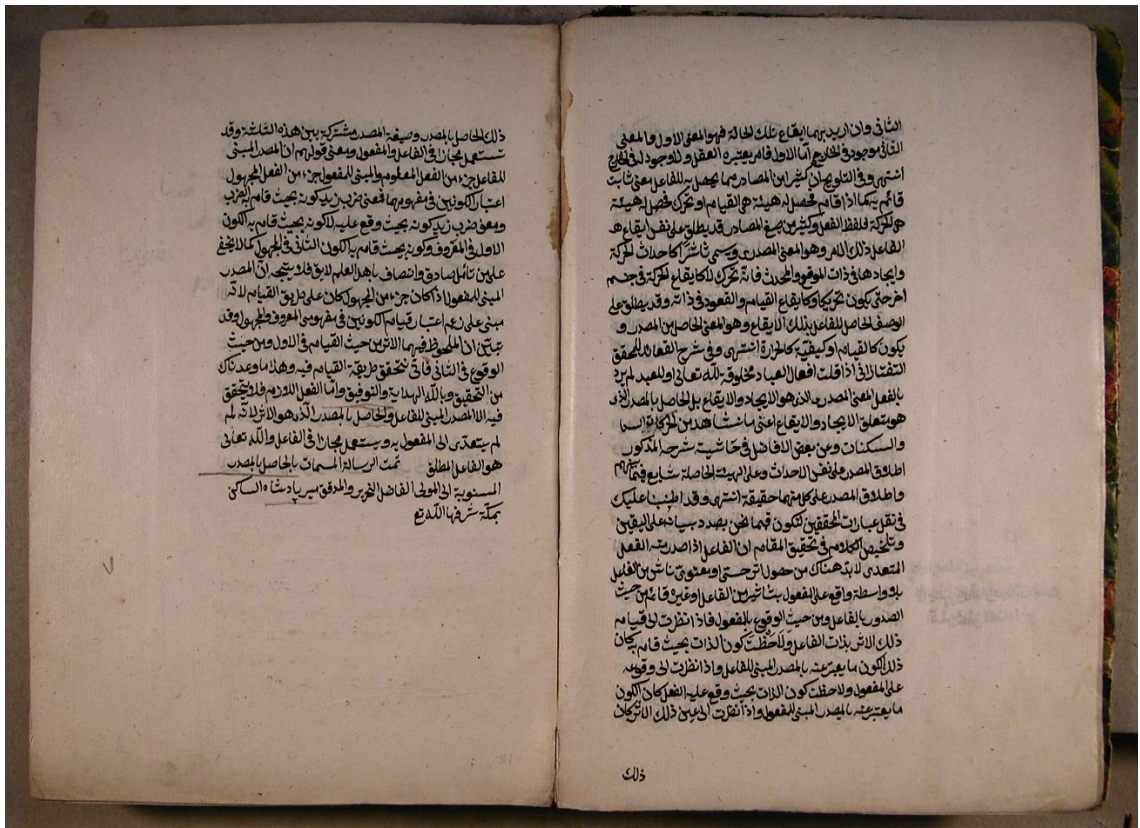 الثانى وان اريد بهما ايقاع تلك الحالة فهو المعنى الاول والمعنى
الثانى موجود فى الخارج اما الاول فامر يعتبره العقل ولا وجود له فى الخارج
انتهى وفى التلويح ان كثيرا من المصادر مما يحصل به للفاعل معنى ثابت
قائم به كما اذا قام فحصل له هيئة هى القيام او تحرك فحصل له هيئة
هى الحركة فلفظ الفعل وكثير من صيغ المصادر قد يطلق على نفس ايقاع
الفاعل ذلك الامر وهو المعنى المصدرى ويسمى تاثيرا كاحداث الحركة
وايجادها فى ذات الموقع والمحدث فانه تحرك لا كايقاع الحركة فى جسم
اخر حتى يكون تحريكا وكايقاع القيام والقعود فى ذاته وقد يطلق على
الوصف الحاصل للفاعل بذلك الايقاع وهو المعنى الحاصل من المصدر و
يكون كالقيام او كيفية كالحرارة انتهى وفى شرح العقائد للمحقق
التفتازانى اذا قلت افعال العباد مخلوقة لله تعالى او للعبد لم يرد
بالفعل المعنى المصدرى الذى هو الايجاد والايقاع بل الحاصل بالمصدر الذى
هو متعلق الايجاد والايقاع اعنى ما نشاهد من الحركات
والسكنات وعن بعض الافاضل فى حاشية شرحه المذكور
اطلاق المصدر على نفس الاحداث وعلى الهيئة الحاصلة شايع فيما بينهم
واطلاق المصدر على كل منهما حقيقة انتهى وقد اطنبنا عليك
فى نقل عبارات المحققين لتكون فيما نحن بصدد بيانه على اليقين
وتلخيص الكلام فى تحقيق المقام ان الفاعل اذا صدر منه الفعل
المتعدى لا بد هناك من حصول اثر حسى او معنوى ناش من الفاعل
بلا واسطة واقع على المفعول بتاثير من الفاعل او غيره قائم من حيث
الصدور بالفاعل ومن حيث الوقوع بالمفعول فاذا نظرت الى قيام
ذلك الاثر بذات الفاعل ولاحظت كون الذات بحيث قام به كان
ذلك الكون ما يعبر عنه بالمصدر المبنى للفاعل واذا نظرت الى وقوعه
على المفعول ولاحظت كون الذات بحيث وقع عليه الفعل كان الكون
ما يعبر عنه بالمصدر المبنى للمفعول واذا نظرت الى عين ذلك الاثر كان
ذلك
ذلك الحاصل بالمصدر وصيغة المصدر مشتركة بين هذه الثلثة وقد
تستعمل مجازا فى الفاعل والمفعول ومعنى قولهم ان المصدر المبنى
للفاعل جزء من الفعل المعلوم والمبنى للمفعول جزء من الفعل المجهول
اعتبار الكونين فى مفهومهما فمعنى ضرب زيد كونه بحيث قام به الضرب
ومعنى ضرب زيد كونه بحيث وقع عليه لا كونه بحيث قام به الكون
الاول فى المعروف وكونه بحيث قام به الكون الثانى فى المجهول كما لا يخفى
على من تامل صادق وانصاف باهل العلم لايق فلا يتجه ان المصدر
المبنى للمفعول اذا كان جزء من المجهول كان على طريق القيام لانه
مبنى على زعم اعتبار قيام الكونين فى مفهومى المعروف والمجهول وقد
تبين ان الملحوظ فيهما الاثر من حيث القيام فى الاول ومن حيث
الوقوع فى الثانى فانى يتحقق طريقة القيام فيه وهذا ما وعدناك
من التحقيق وبالله الهداية والتوفيق واما الفعل اللازم فلا يتحقق
فيه الا المصدر المبنى للفاعل والحاصل بالمصدر الذى هو الاثر لانه لم
لم يتعدى الى المفعول به ويستعمل مجازا فى الفاعل والله تعالى
هو الفاعل المطلق تمت الرسالة المسمات بالحاصل بالمصدر
المنسوبة الى المولى الفاضل النحرير والمدقق مير پادشاه الساكن
بمكة شرفها الله تع